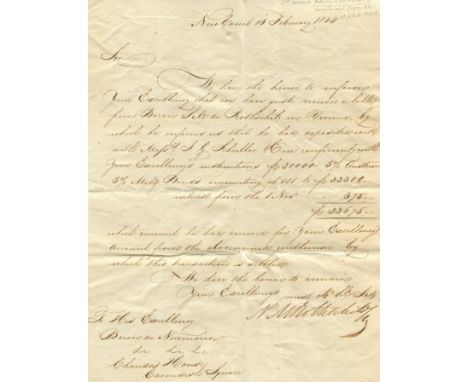 New Court 15 February 1844
Sir,
We have the honor to inform
Your Excellency that we have just received a letter
from Baron S. M. de Rothschild in Vienna by
which he informs us that he has deposited
with Messrs in conformity with
Your Excellency's instructions 30000 5%
5% Bonds amounting at 111 to 33300.
interest from the 1 Nov 375.—
33675.—
which amount he has for Your Excellency's
account from the abovenamed by
which this transaction is settled.
We have the honor to remain
Your Excellency's
most
N M Rothschild
To His Excellency
Baron de Neumann
&c &c &c
Chandos House
Cavendish Square